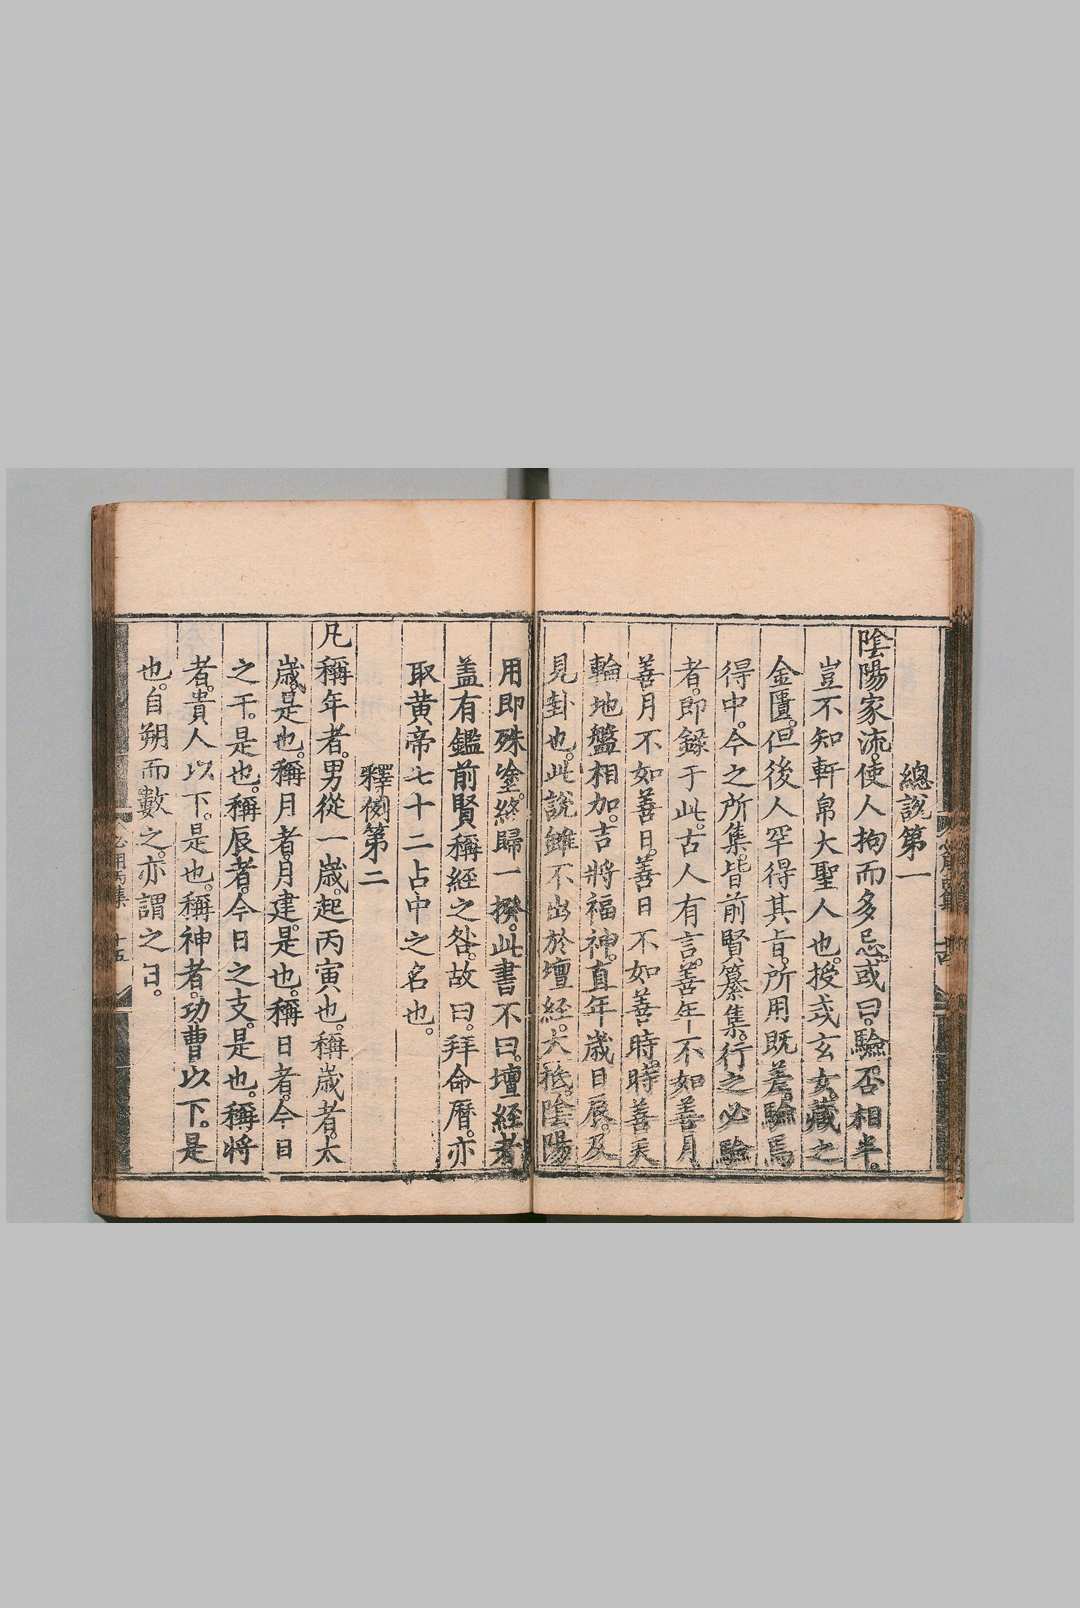 總説第一
陰陽家流。使人拘而多忌。或曰。驗否相半。
豈不知軒帝大聖人也。授或玄女。藏之
金匱。但後人罕得其旨。所用既差。驗焉
得中。今之所集。皆前賢纂集。行之必驗
者。即錄于此。古人有言。善年不如善月
善月不如善日。善日不如善時。時善天
輪地盤相加。吉將福神。直年歲日辰。及
見卦也。此說雖不出於壇經。大抵陰陽
用即殊塗。終歸一揆。此書不曰壇經者
盖有鑑前賢稱經之咎。故曰拜命曆。亦
取黄帝七十二占中之名也。
釋例第二
凡稱年者。男從一歲。起丙寅也。稱歲者。太
歲是也。稱月者。月建是也。稱日者。今日
之干。是也。稱辰者。今日之支。是也。稱將
者。貴人以下。是也。稱神者。功曹以下。是
也。自朔而數之。亦謂之日。